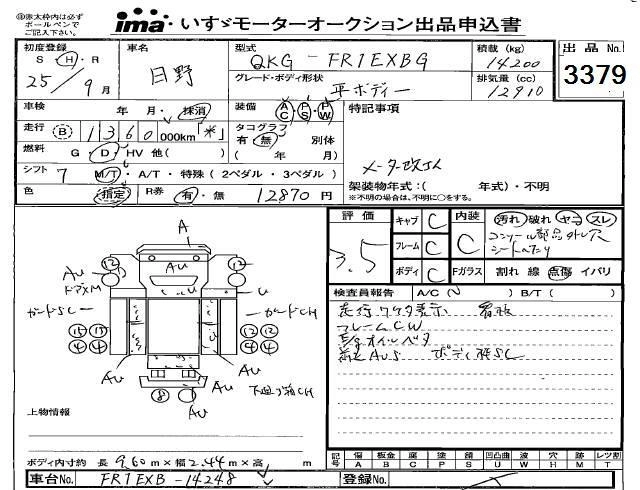 ※赤太枠内は必ず
ボールペンで
ご記入下さい。
ima いすゞモーターオークション出品申込書
初度登録
S・H・R
25/9月
車名
日野
型式
QKG-FR1EXBG
積載(kg)
14200
出品No.
3379
グレード・ボディ形状
平ボディー
排気量(cc)
12910
車検 年 月・抹消
装備 AC・PS・PW
特記事項
走行 B 1360000km「*」
タコグラフ
有・無 別体
( 年 月)
燃料 G・D・HV 他( )
メーター改ざん
シフト 7 M/T・A/T・特殊(2ペダル・3ペダル)
架装物年式:( 年式)・不明
※不明の場合は、不明に○をする。
色 指定 R券 有・無 12870円
評価
3.5
キャブ C
フレーム C
ボディ C
内装
C
汚れ 破れ ヤニ スレ
コンソール部品外し穴
Fガラス 割れ 線 点傷 イバリ
検査員報告 A/C( ) B/T( )
フレームCW
Egオイル
ボディ
A
Au
12
12
Au
U
U
ガードSC
ガードCH
15 13
4 4
12 12
4 4
Au
Au
Au
8
Au
上物情報
ボディ内寸約 長 9.60m×幅 2.44m×高 m
記号
傷 A
板金 B
腐 C
塗 P
錆 S
凹凸曲 U
波 W
穴 H
跡 M
レツ割 T
車台No. FR1EXB-14248
登録No.